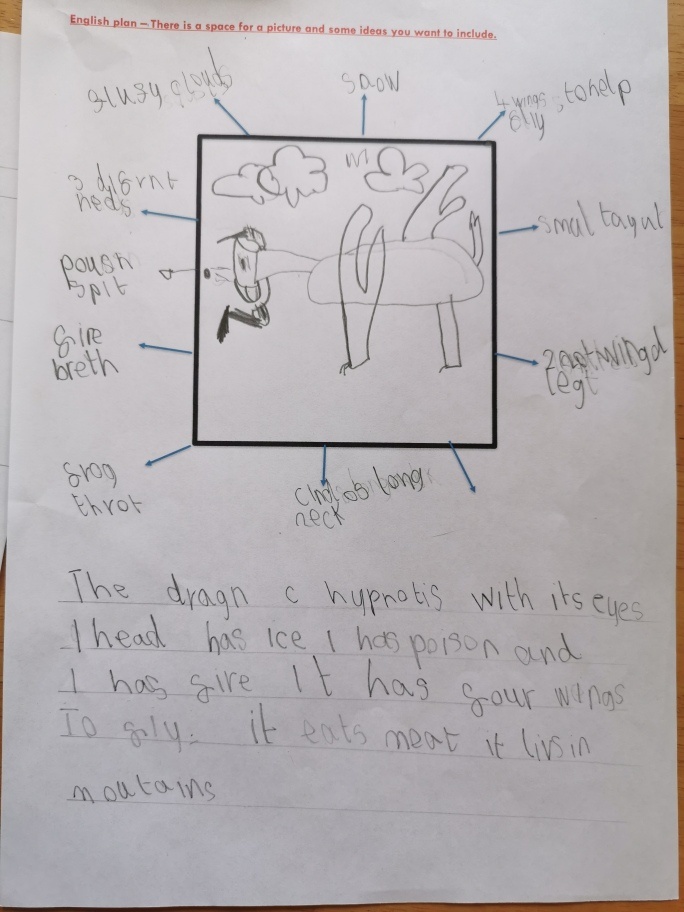 English plan – There is a space for a picture and some ideas you want to include.
glusy clouds
snow
4 wings to help
glly
3 difgrnt
heds
smal
spit
gire
breth
2
legt
grog
throt
long
neck
The dragn c hypnotis with its eyes
1 head has ice 1 has poison and
1 has gire It has gour wings
To gly. it eats meat it livs in
moutains